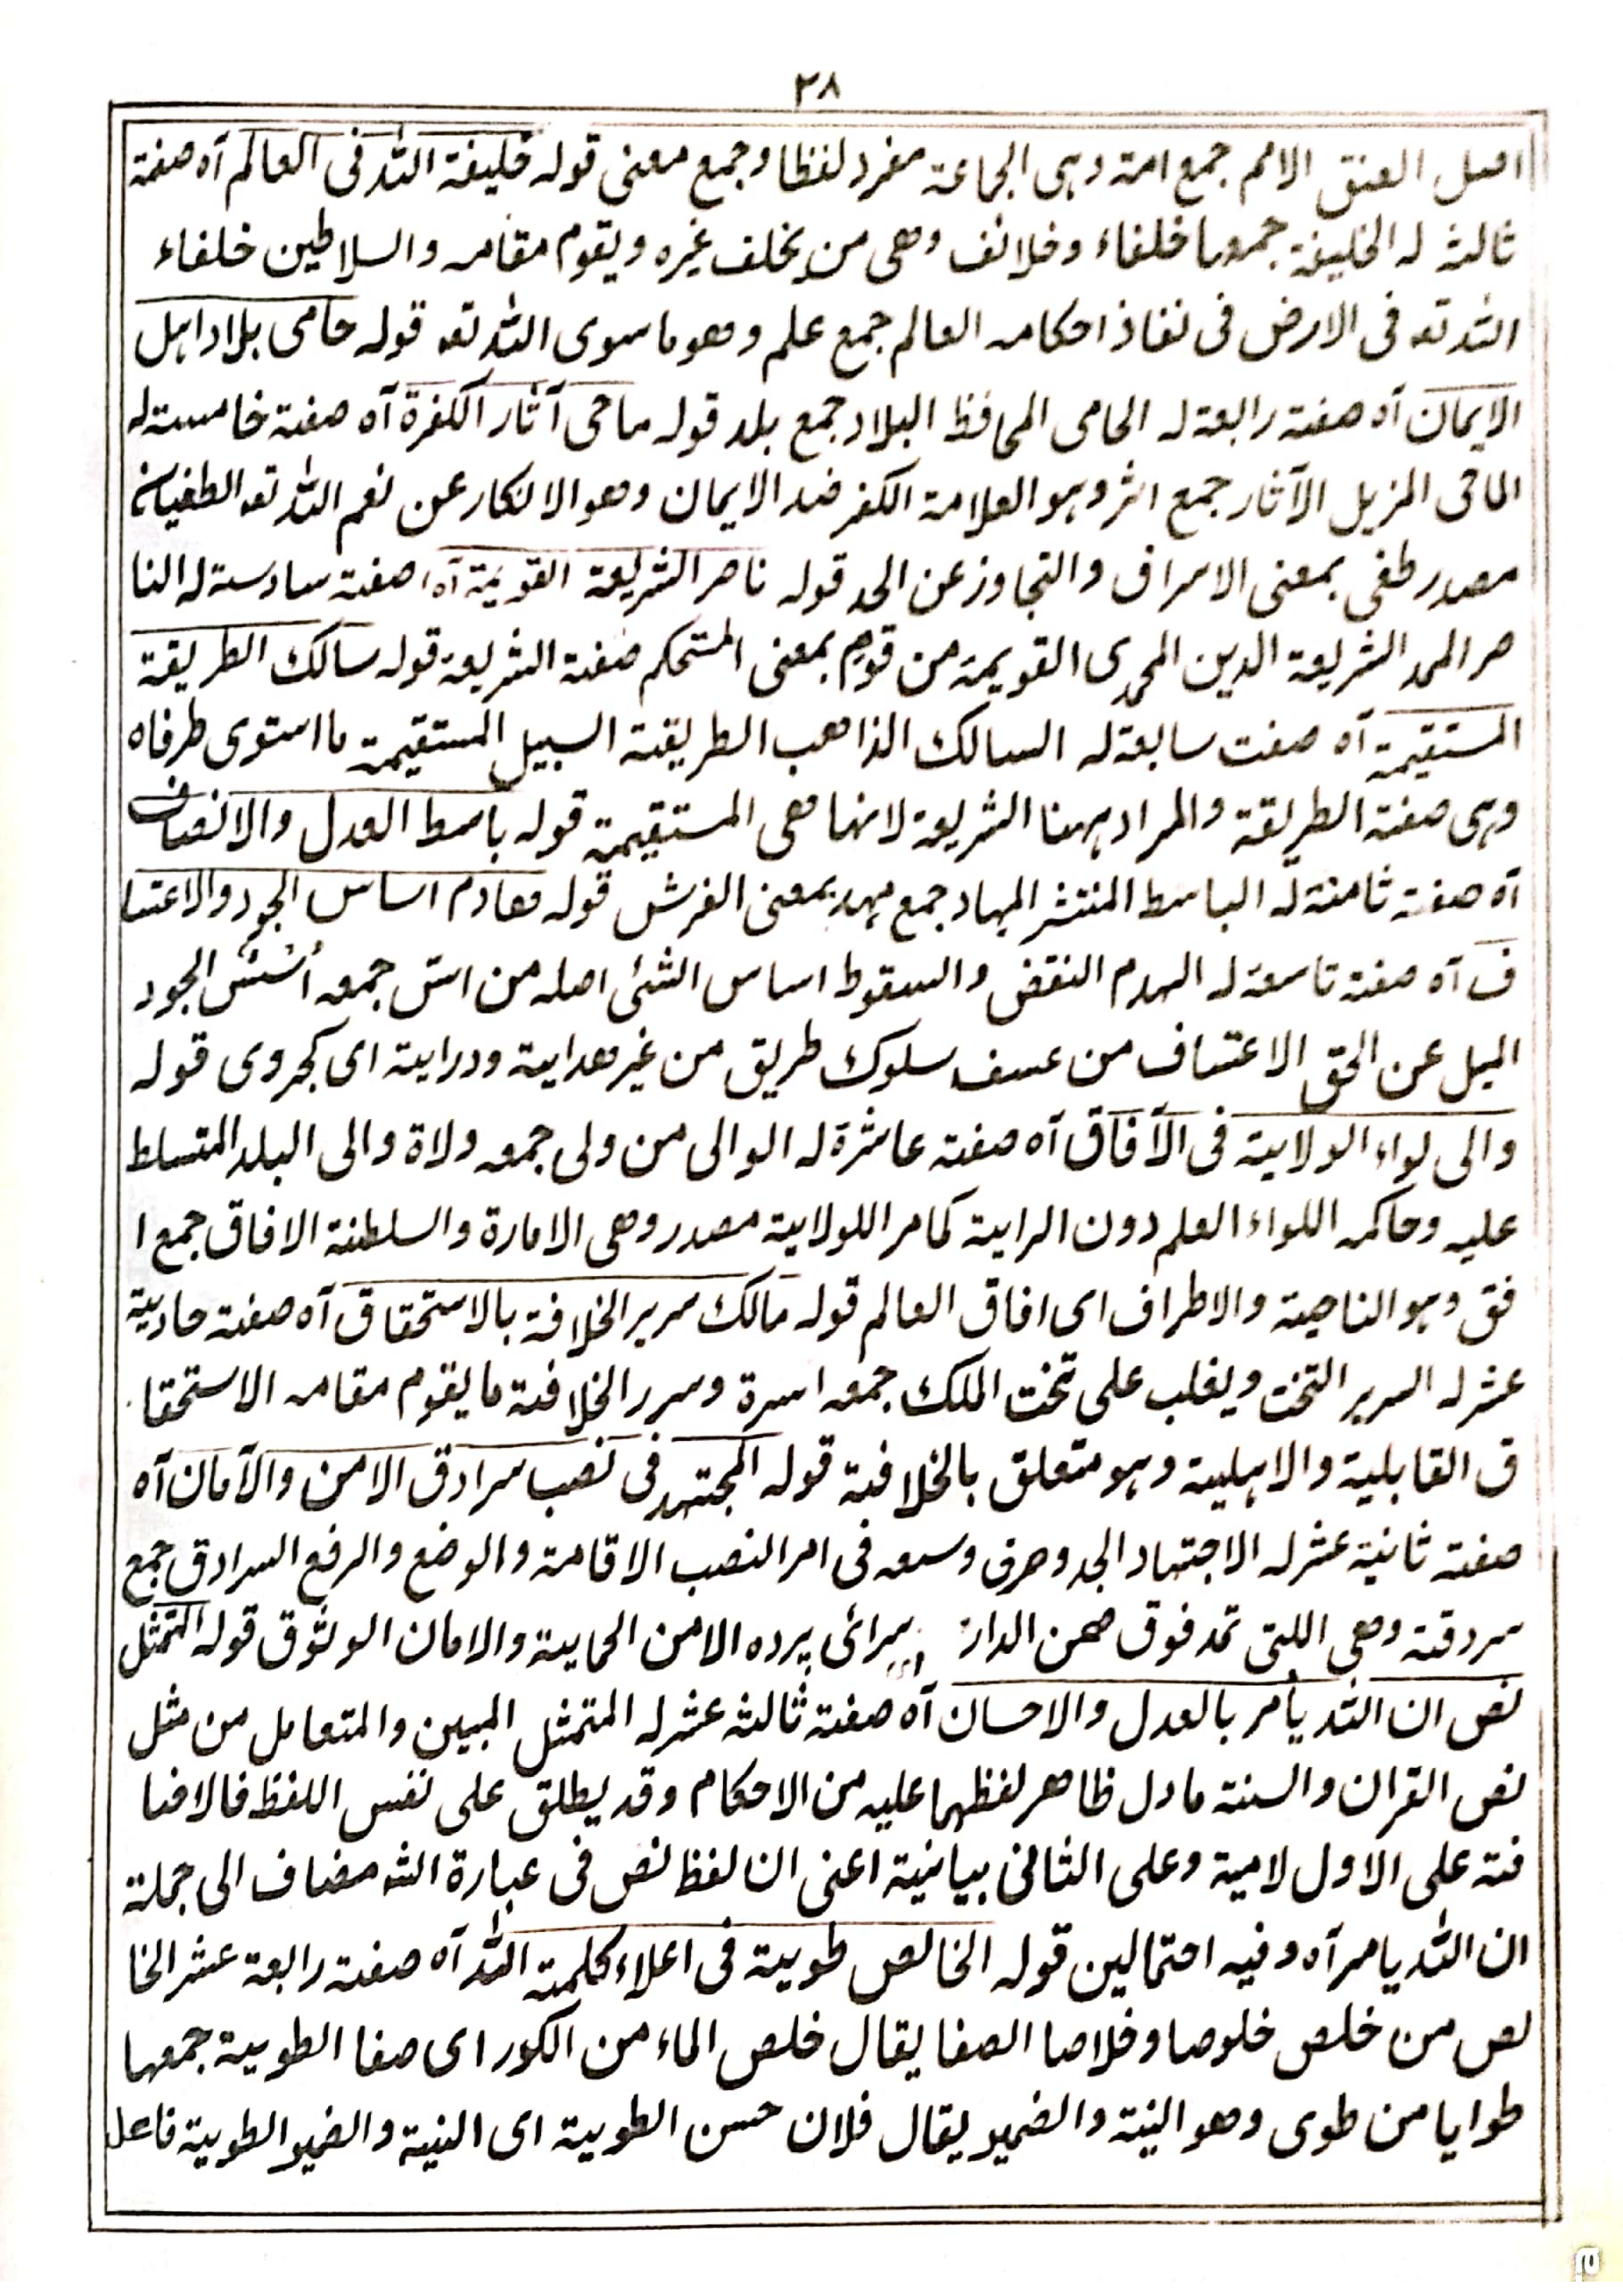 ٣٨
اصل العنق الامم جمع امة وہی الجماعۃ مفرد لفظا وجمع معنی قولہ خلیفۃ اللہ فی العالم آہ صفۃ
ثالثۃ لہ الخلیفۃ جمعہا خلفاء وخلائف وھی من یخلف غیرہ ویقوم مقامہ والسلاطین خلفاء
اللہ تعہ فی الارض فی نفاذ احکامہ العالم جمع علم وھو ما سوی اللہ تعہ قولہ حامی بلاد اہل
الایمان آہ صفۃ رابعۃ لہ الحامی المحافظ البلاد جمع بلد قولہ ماحی آثار الکفرۃ آہ صفۃ خامسۃ لہ
الماحی المزیل الآثار جمع اثر وہو العلامۃ الکفر ضد الایمان وھو الانکار عن نعم اللہ تعہ الطغیان
مصدر طغی بمعنی الاسراف والتجاوز عن الحد قولہ ناصر الشریعۃ القویمۃ آہ صفۃ سادسۃ لہ النا
صر الممد الشریعۃ الدین المحمدی القویمۃ من قوم بمعنی المستحکم صفۃ الشریعۃ قولہ سالک الطریقۃ
المستقیمۃ آہ صفت سابعۃ لہ السالک الذاھب الطریقۃ السبیل المستقیمۃ ما استوی طرفاہ
وہی صفۃ الطریقۃ والمراد ہہنا الشریعۃ لانہا ھی المستقیمۃ قولہ باسط العدل والانصاف
آہ صفۃ ثامنۃ لہ الباسط المنتشر المہاد جمع مہد بمعنی الفرش قولہ ھادم اساس الجود والاعتسا
ف آہ صفۃ تاسعۃ لہ الہدم النقض والسقوط اساس الشئی اصلہ من اسّ جمعہ اُسُسٌ الجود
المیل عن الحق الاعتساف من عسف سلوک طریق من غیر ھدایۃ ودرایۃ ای کجروی قولہ
والی لواء الولایۃ فی الآفاق آہ صفۃ عاشرۃ لہ الوالی من ولی جمعہ ولاۃ والی البلد المتسلط
علیہ وحاکمہ اللواء العلم دون الرایۃ کمامر اللولایۃ مصدر وھی الامارۃ والسلطنۃ الافاق جمع ا
فق وہو الناحیۃ والاطراف ای افاق العالم قولہ مالک سریر الخلافۃ بالاستحقاق آہ صفۃ حادیۃ
عشر لہ السریر التخت ویغلب علی تخت الملک جمعہ اسرۃ وسرر الخلافۃ ما یقوم مقامہ الاستحقا
ق القابلیۃ والاہلیۃ وہو متعلق بالخلافۃ قولہ المجتہد فی نصب سرادق الامن والآمان آہ
صفۃ ثانیۃ عشر لہ الاجتہاد الجد وصرف وسعہ فی امر النصب الاقامۃ والوضع والرفع السرادق جمع
سردقۃ وھی اللتی تمد فوق صحن الدار سرائی پردہ الامن الحمایۃ والامان الوثوق قولہ المتمثل
نص ان اللہ یأمر بالعدل والاحسان آہ صفۃ ثالثۃ عشر لہ المتمثل المبین والمتعامل من مثل
نص القران والسنۃ ما دل ظاھر لفظہما علیہ من الاحکام وقد یطلق علی نفس اللفظ فالاضا
فۃ علی الاول لامیۃ وعلی الثانی بیانیۃ اعنی ان لفظ نص فی عبارۃ الشہ مضاف الی جملۃ
ان اللہ یامر آہ وفیہ احتمالین قولہ الخالص طویۃ فی اعلاء کلمۃ اللہ آہ صفۃ رابعۃ عشر الخا
لص من خلص خلوصا وخلاصا الصفا یقال خلص الماء من الکور ای صفا الطویۃ جمعہا
طوایا من طوی وھو النیۃ والضمیر یقال فلان حسن الطویۃ ای النیۃ والضمیر الطویۃ فاعل